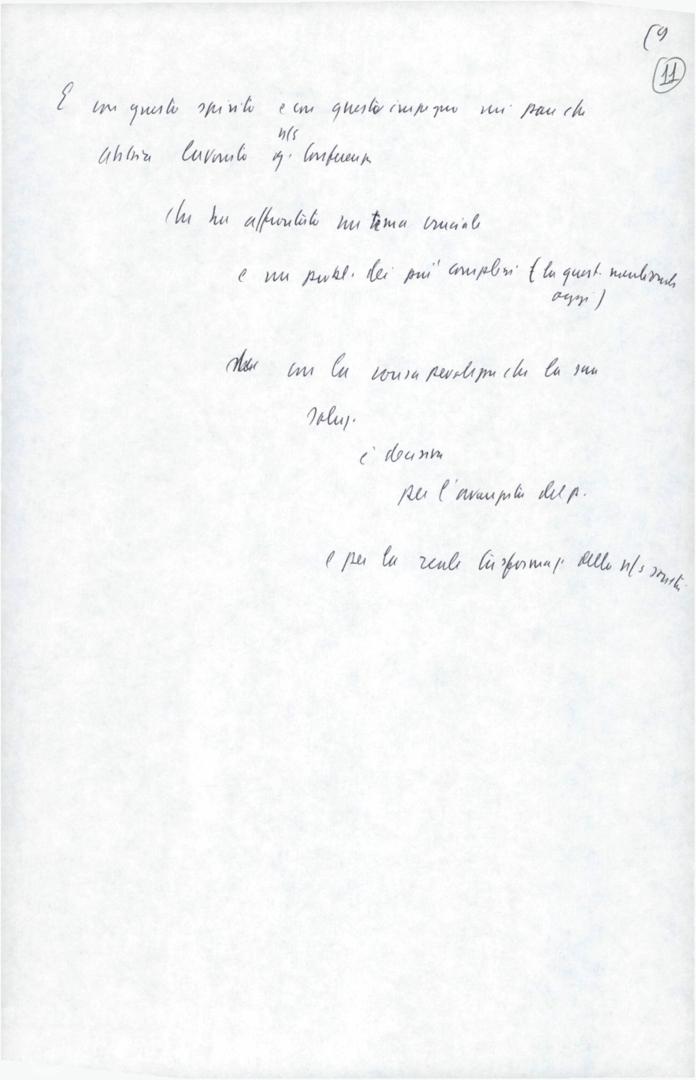 (9
11
E con questo spirito e con questo impegno mi pare che
n/s
abbia lavorato q. Conferenza
che ha affrontato un tema cruciale
e un probl. dei più complessi (la quest. meridionale
oggi)
con la consapevolezza che la sua
soluz.
è decisiva
per l'avanzata del p.
e per la reale trasformaz. della n/s società